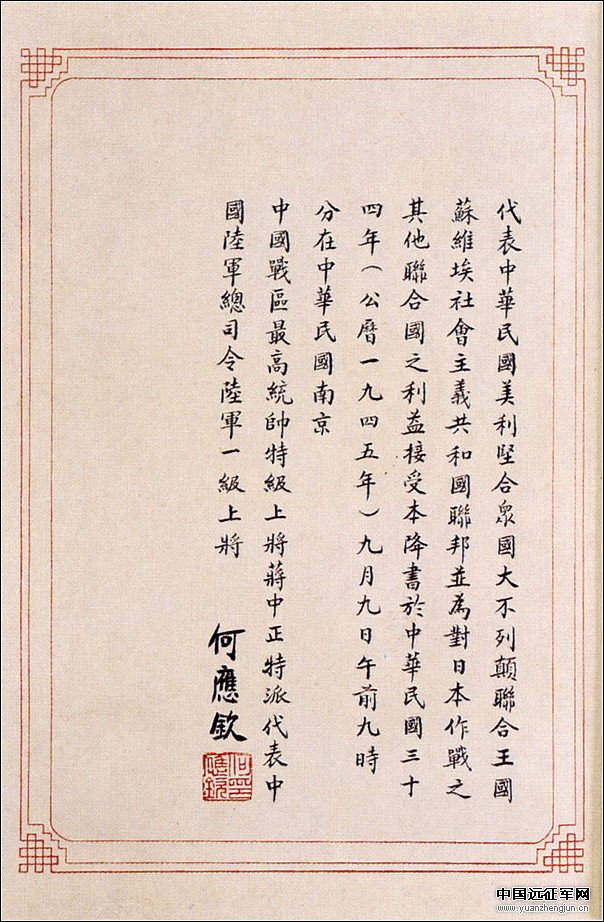 代表中華民國美利堅合衆國大不列顛聯合王國
蘇維埃社會主義共和國聯邦並為對日本作戰之
其他聯合國之利益接受本降書於中華民國三十
四年(公曆一九四五年)九月九日午前九時
分在中華民國南京
中國戰區最高統帥特級上將蔣中正特派代表中
國陸軍總司令陸軍一級上將
何應欽
何應欽印
中国远征军网
www.yuanzhengjun.cn